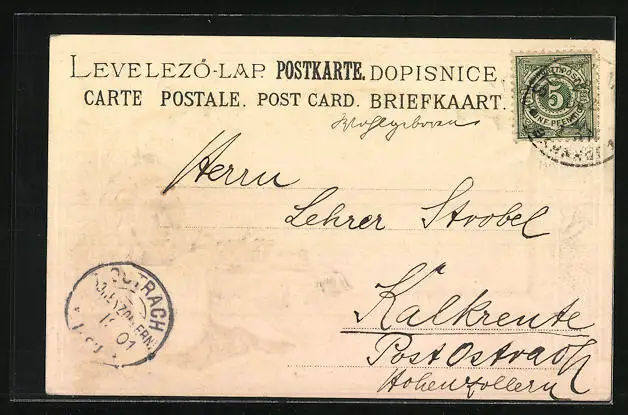 LEVELEZŐ-LAP. POSTKARTE. DOPISNICE.
CARTE POSTALE. POST CARD. BRIEFKAART.
Wohlgeboren
Herrn
Lehrer Strobel
Kalkreute
Post Ostrach
Hohenzollern
5
OSTRACH
01